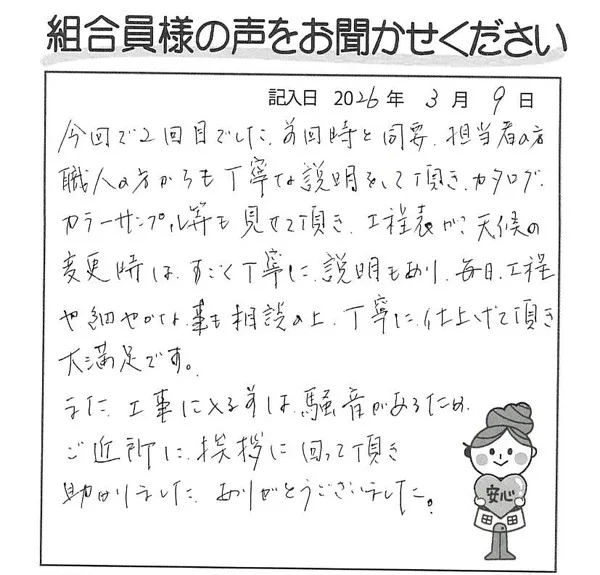 組合員様の声をお聞かせください
記入日 2026年 3月 9日
今回で2回目でした。前回時と同要、担当者の方
職人の方からも丁寧な説明をして頂き、カタログ、
カラーサンプル等も見せて頂き、工程表が、天候の
変更時は、すごく丁寧に、説明もあり、毎日、工程
や細やかな事も相談の上、丁寧に、仕上げて頂き
大満足です。
また、工事に入る前は、騒音があるため、
ご近所に、挨拶に回って頂き
助かりました。ありがとうございました。
安心